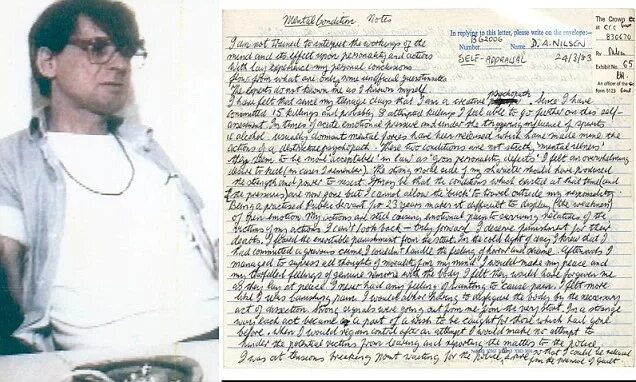 Mental Condition Notes
The Crown
at CCC
830670
In replying to this letter, please write on the envelope:—
Number BG2006 Name D. A. NILSEN
SELF-APPRAISAL 24/3/83
Exhibit No. 65
An officer of the
I am not trained to interpret the workings of the
mind and its effect upon personality and actions
With lay experience my personal conclusions
now are only some unofficial guesstimates
The experts do not know me as I know myself
psychopath
I have felt that since my teenage days that I am a creative. Since I have
committed 15 killings and probably 8 attempted killings I feel able to go further on this self-
assessment. In times of acute emotional pressure and under the triggering influence of spirits
& alcohol usually dominant mental forces have been released which have made mine the
actions of a destructive psychopath. These two conditions are not strictly 'mental illness'
them to be most acceptable in law as 'gross personality defects' I felt an overwhelming
desire to kill (in cases I remember). The strong moral side of my character should have produced
the strength and power to resist. It may be that the conditions which existed at that time (and
the pressures) are now gone but I cannot allow the 'buck' to travel outside my responsibility
Being a practised Public Servant for 23 years makes it difficult to display (the weakness)
of open emotion. My actions are still causing emotional pain to surviving relatives of the
victims of my actions. I can't look back — only forward. I deserve punishment for their
deaths. I feared the inevitable punishment from the state. In the cold light of day I knew that I
had committed a grievous crime. I couldn't handle the feeling of horror and shame. Afterwards I
managed to suppress all thoughts of morality from my mind. I would make my peace and
my feelings of genuine remorse with the body. I felt they would have forgiven me
as they lay at peace. I never had any feeling of wanting to cause pain. I felt more
like I was banishing pain. I would abhor having to disfigure the body by the necessary
act of dissection. Strong signals were going out from me from the very start. In a strange
way each act became a part of a wish to be caught for those which had gone
before. When I would regain control after an attempt I would make no attempt to
hinder the potential victims from leaving and reporting the matter to the police.
I was at tensions breaking point waiting for the Police so that I could be relieved
from the of guilt